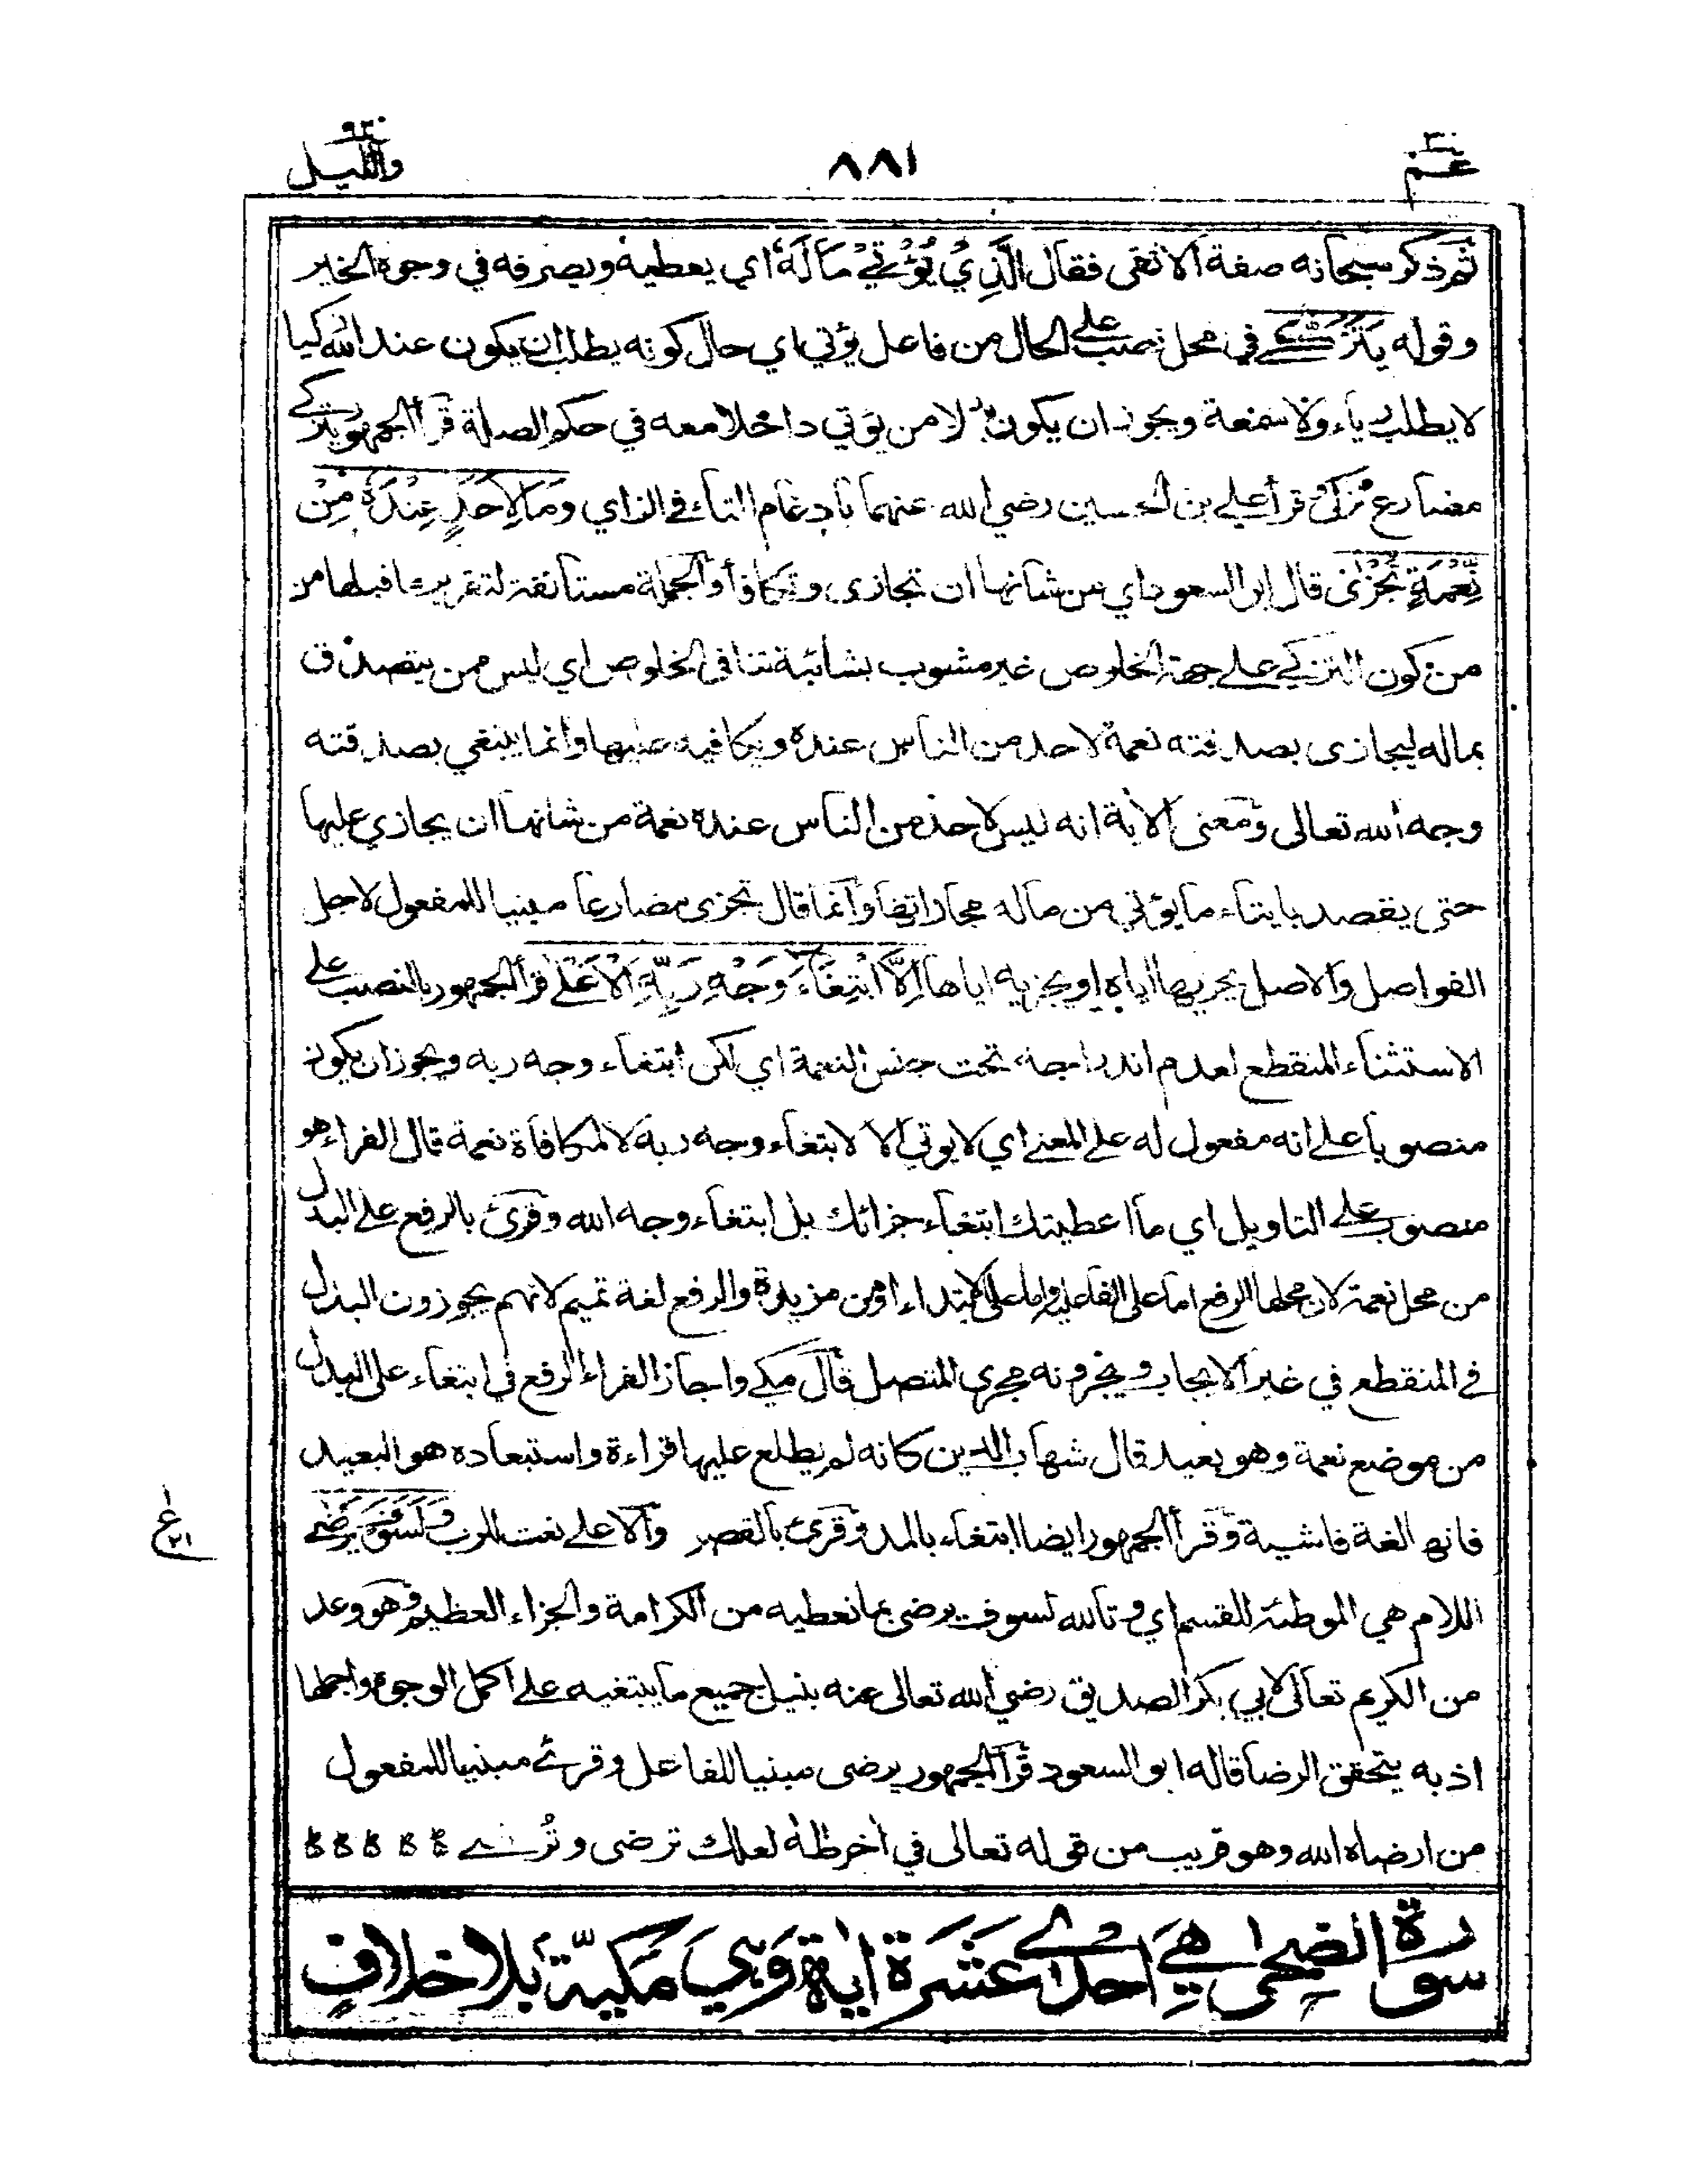 عم ٣٠
٨٨١
والليل ٩٢
ثم ذكر سبحانه صفة الاتقى فقال الَّذِيْ يُؤْتِيْ مَالَهٗ اي يعطيه ويصرفه في وجوه الخير
وقوله يَتَزَكّٰے في محل نصب على الحال من فاعل يؤتي اي حال كونه يطلب ان يكون عند الله زكيا
لا يطلب رياء ولا سمعة ويجوز ان يكون بدلا من يؤتي داخلا معه في حكم الصلة قرأ الجمهور يتزكے
مضارع تزكى وقرأ علي بن الحسين رضي الله عنهما بادغام التاء في الزاي وَمَا لِاَحَدٍ عِنْدَهٗ مِنْ
نِّعْمَةٍ تُجْزٰى قال ابو السعود اي من شانها ان تجازى وتكافأ والجملة مستأنفة لتقرير ما قبلها من
من كون التزكي على جهة الخلوص غير مشوب بشائبة تنافى الخلوص اي ليس ممن يتصدق
بماله ليجازى بصدقته نعمة لاحد من الناس عنده ويكافيه عليها وانما يبتغي بصدقته
وجه الله تعالى ومعنى الآية انه ليس لاحد من الناس عنده نعمة من شانها ان يجازي عليها
حتى يقصد بايتاء ما يؤتي من ماله مجازاتها وانما قال تجزى مضارعا مبنيا للمفعول لاجل
الفواصل والاصل يجزيها اياه او يجزيه اياها اِلَّا ابْتِغَاءَ وَجْهِ رَبِّهِ الْاَعْلٰے قرأ الجمهور بالنصب على
الاستثناء المنقطع لعدم اندراجه تحت جنس النعمة اي لكن ابتغاء وجه ربه ويجوز ان يكون
منصوبا على انه مفعول له على المعنى اي لا يوتي الا لابتغاء وجه ربه لا لمكافاة نعمة قال الفراء هو
منصوب على التاويل اي ما اعطيتك ابتغاء جزائك بل ابتغاء وجه الله وقرئ بالرفع على البدل
من محل نعمة لان محلها الرفع اما على الفاعلية واما على الابتداء ومن مزيدة والرفع لغة تميم لانهم يجوزون البدل
في المنقطع في غير الايجاب ويجرونه مجرى المتصل قال مكي واجاز الفراء الرفع في ابتغاء على البدل
من موضع نعمة وهو بعيد قال شهاب الدين كانه لم يطلع عليها قراءة واستبعاده هو البعيد
فانها لغة فاشية وقرأ الجمهور ايضا ابتغاء بالمد وقرئ بالقصر والاعلى نعت للرب وَلَسَوْفَ يَرْضٰے
اللام هي الموطئة للقسم اي وتالله لسوف يرضى بما نعطيه من الكرامة والجزاء العظيم وهو وعد
من الكريم تعالى لابي بكر الصديق رضي الله تعالى عنه بنيل جميع ما يبتغيه على اكمل الوجوه واجملها
اذ به يتحقق الرضا قاله ابو السعود قرأ الجمهور يرضى مبنيا للفاعل وقرئ مبنيا للمفعول
من ارضاه الله وهو قريب من قوله تعالى في آخر طه لعلك ترضى وتُرضے
سورة الضحى هي احدى عشرة اية وهي مكيّة بلا خلاف
ع ٢١